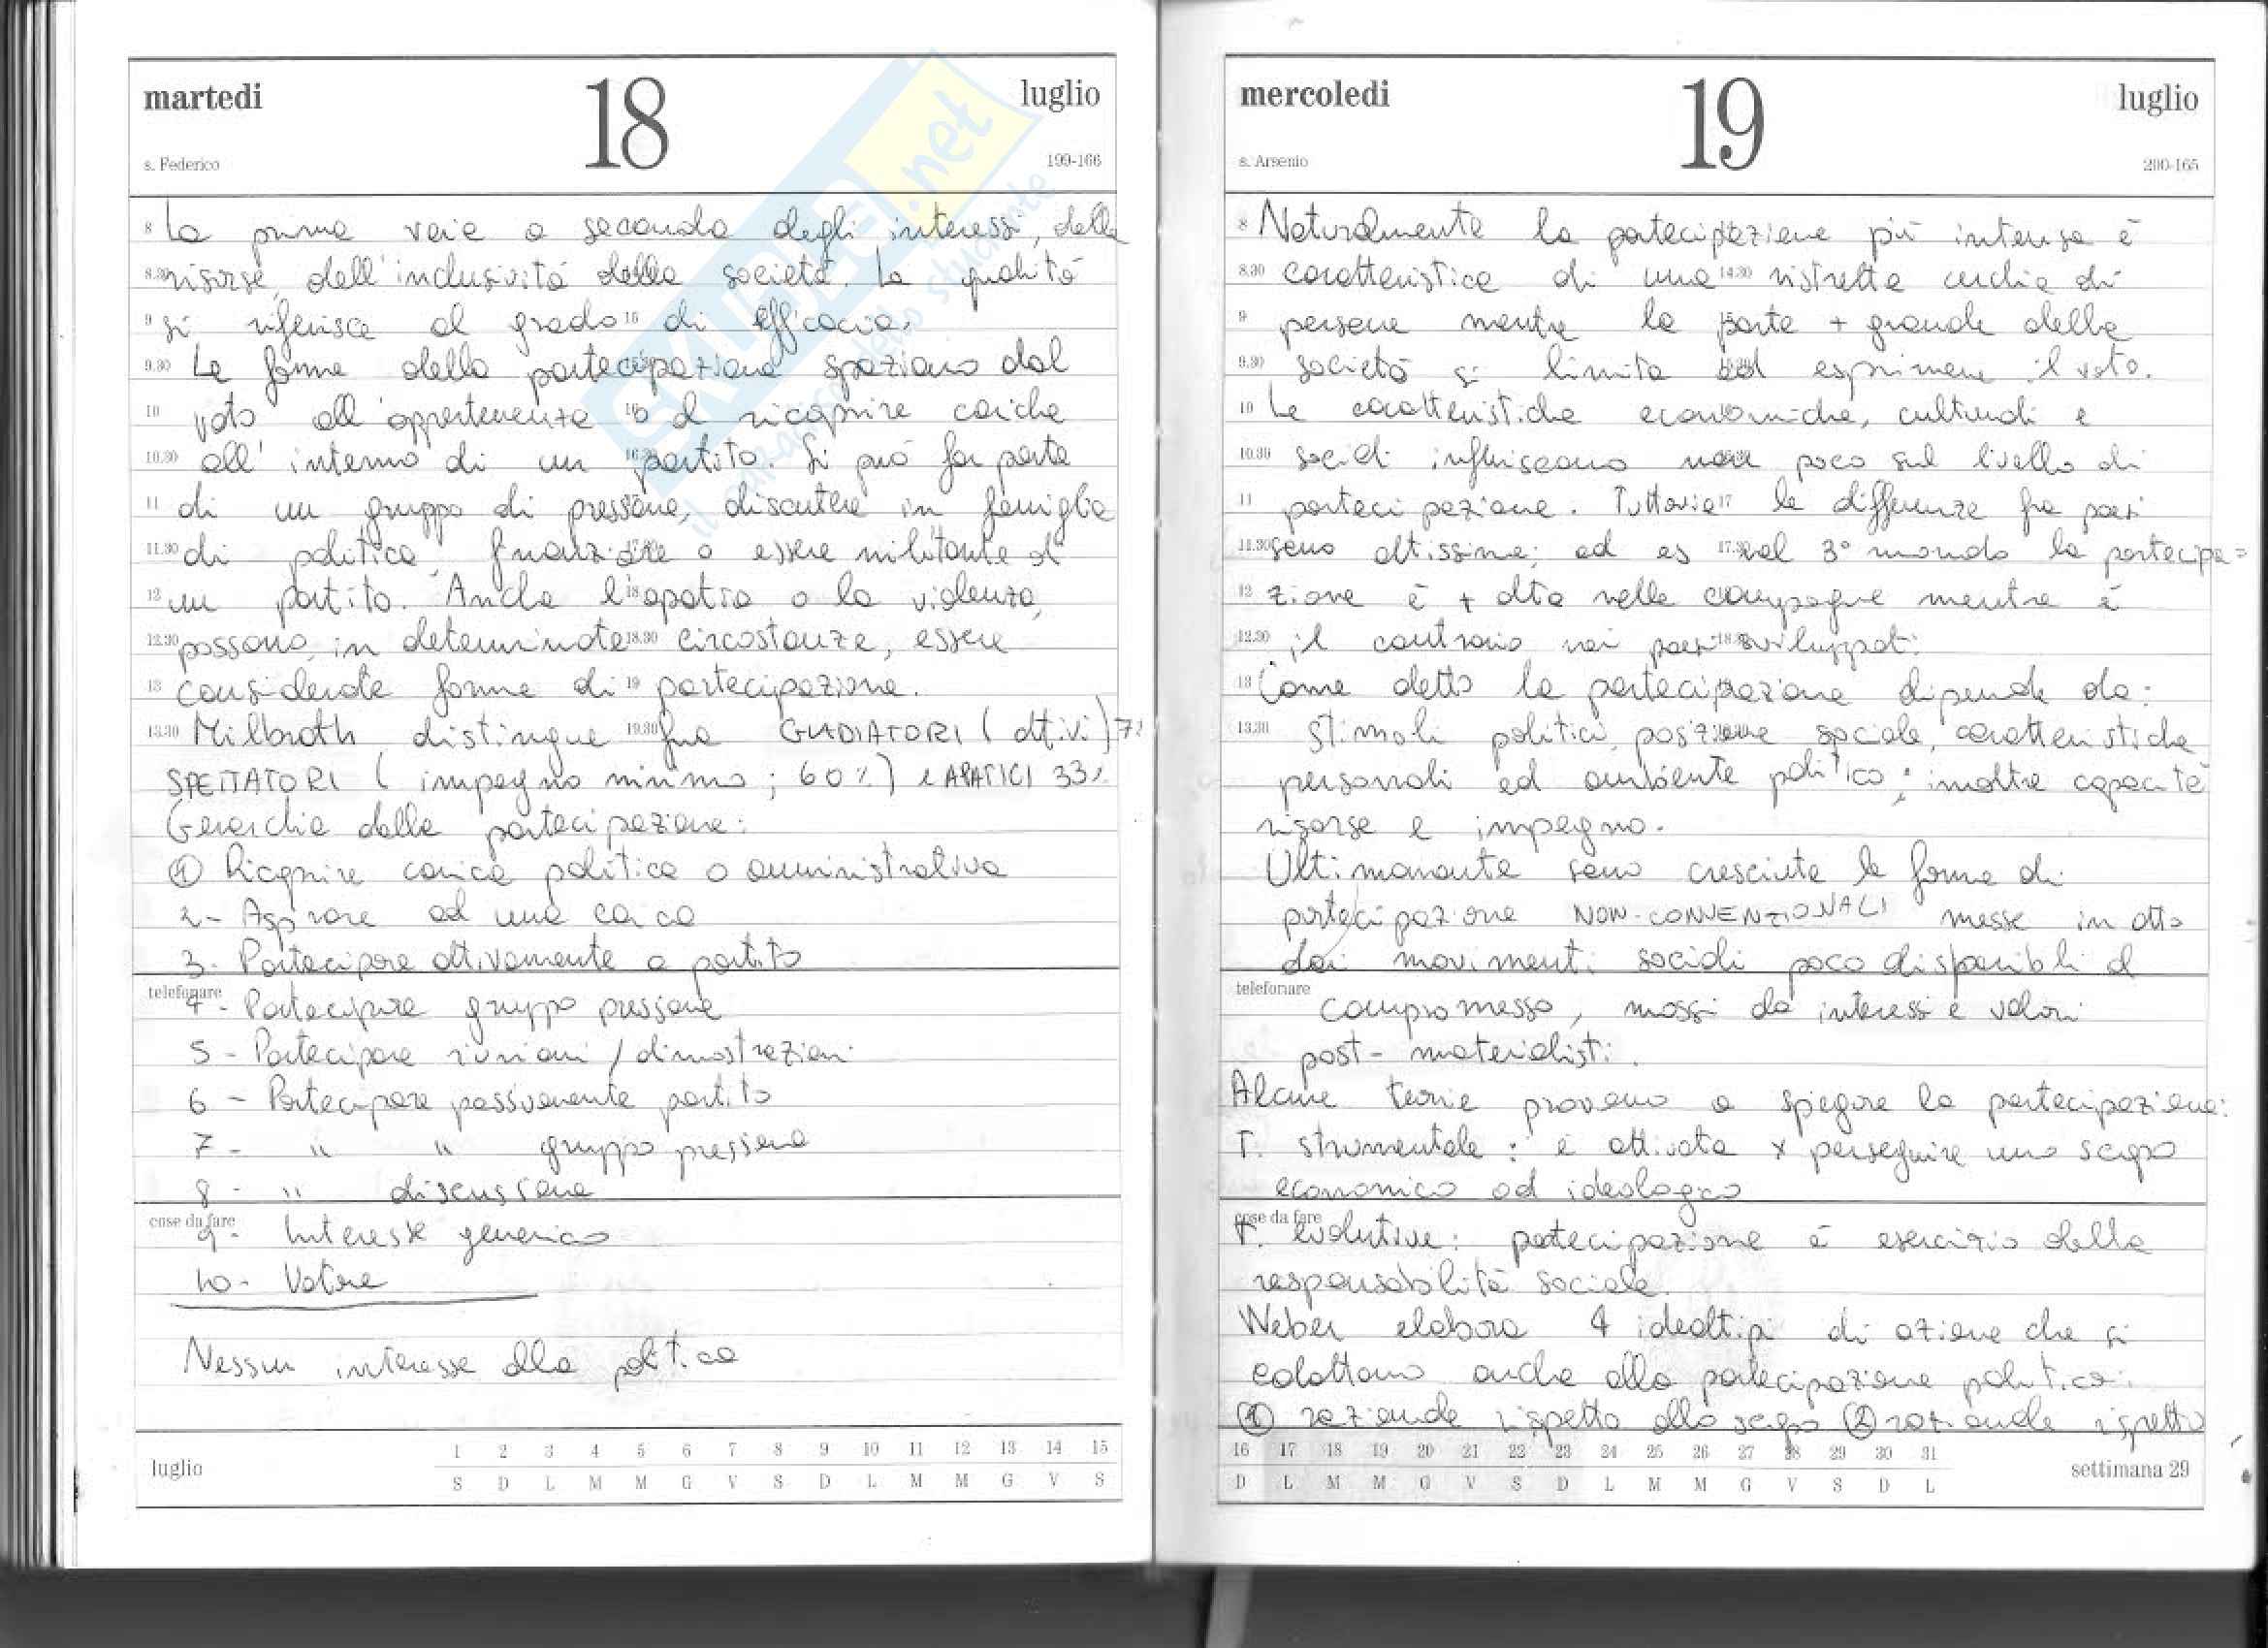 martedi 18 luglio
s. Federico 199-166
8 La prima varia a seconda degli interessi, delle
8.30 risorse, dell'inclusività della società. La qualità
9 si riferisce al grado 15 di efficacia.
9.30 Le forme della partecipazione spaziano dal
10 voto all'appartenenza 16 o al ricoprire cariche
10.30 all'interno di un partito. Si può far parte
11 di un gruppo di pressione, discutere in famiglia
11.30 di politica, finanziare o essere militante di
12 un partito. Anche l'apatia o la violenza,
12.30 possono, in determinate 18.30 circostanze, essere
13 considerate forme di 19 partecipazione.
13.30 Milbrath distingue 19.30 fra GLADIATORI (attivi) 7%
SPETTATORI (impegno minimo; 60%) e APATICI 33%
Gerarchia della partecipazione:
① Ricoprire carica politica o amministrativa
2- Aspirare ad una carica
3- Partecipare attivamente a partito
telefonare
4- Partecipare gruppo pressione
5- Partecipare riunioni / dimostrazioni
6- Partecipare passivamente partito
7- " " gruppo pressione
8- " discussione
cose da fare
9- Interesse generico
10- Votare
Nessun interesse alla politica
luglio 1 2 3 4 5 6 7 8 9 10 11 12 13 14 15
S D L M M G V S D L M M G V S
mercoledi 19 luglio
s. Arsenio 200-165
8 Naturalmente la partecipazione più intensa è
8.30 caratteristica di una 14.30 ristretta cerchia di
9 persone mentre la parte + grande della
9.30 società si limita ad esprimere il voto.
10 Le caratteristiche economiche, culturali e
10.30 sociali influiscono non poco sul livello di
11 partecipazione. Tuttavia 17 le differenze fra paesi
11.30 sono altissime; ad es 17.30 nel 3° mondo la partecipa=
12 zione è + alta nelle campagne mentre è
12.30 il contrario nei paesi 18.30 sviluppati.
13 Come detto la partecipazione dipende da:
13.30 stimoli politici, posizione sociale, caratteristiche
personali ed ambiente politico; inoltre capacità
risorse e impegno.
Ultimamente sono cresciute le forme di
partecipazione NON-CONVENZIONALI messe in atto
dai movimenti sociali poco disponibili al
telefonare
compromesso, mossi da interessi e valori
post-materialisti.
Alcune teorie provano a spiegare la partecipazione:
T. strumentale: è attivata x perseguire uno scopo
economico od ideologico
cose da fare
T. evolutive: partecipazione è esercizio della
responsabilità sociale.
Weber elabora 4 idealtipi di azione che si
adattano anche alla partecipazione politica:
① razionale rispetto allo scopo ② razionale rispetto
16 17 18 19 20 21 22 23 24 25 26 27 28 29 30 31
D L M M G V S D L M M G V S D L
settimana 29
SKUOLA.net